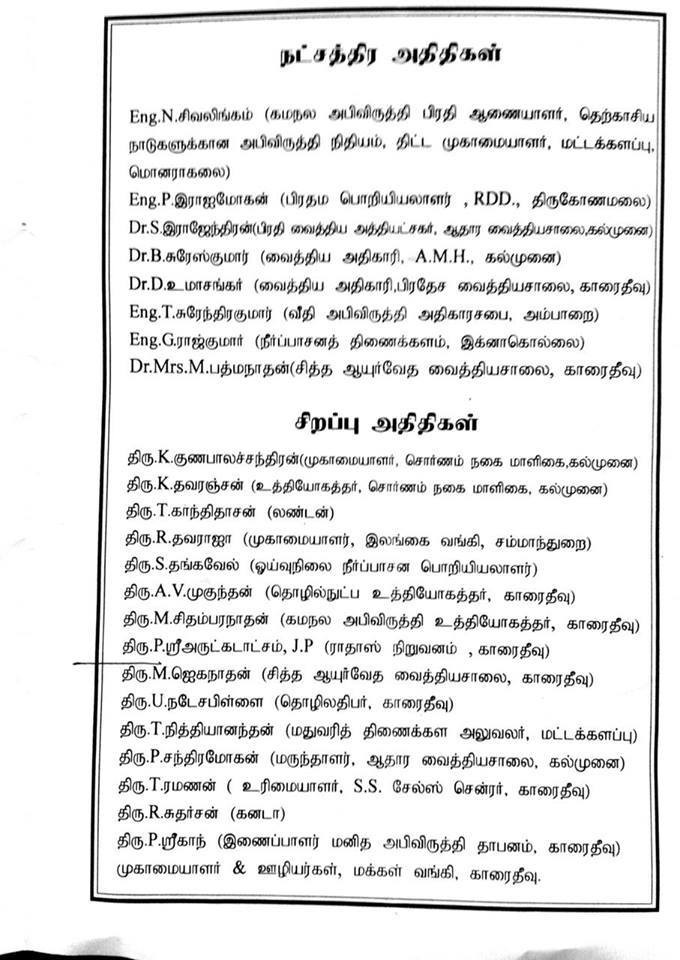 நட்சத்திர அதிதிகள்
Eng.N.சிவலிங்கம் (கமநல அபிவிருத்தி பிரதி ஆணையாளர், தெற்காசிய
நாடுகளுக்கான அபிவிருத்தி நிதியம், திட்ட முகாமையாளர், மட்டக்களப்பு,
மொனராகலை)
Eng.P.இராஜமோகன் (பிரதம பொறியியலாளர் , RDD., திருகோணமலை)
Dr.S.இராஜேந்திரன்(பிரதி வைத்திய அத்தியட்சகர், ஆதார வைத்தியசாலை,கல்முனை)
Dr.B.சுரேஸ்குமார் (வைத்திய அதிகாரி, A.M.H., கல்முனை)
Dr.D.உமாசங்கர் (வைத்திய அதிகாரி,பிரதேச வைத்தியசாலை, காரைதீவு)
Eng.T.சுரேந்திரகுமார் (வீதி அபிவிருத்தி அதிகாரசபை, அம்பாறை)
Eng.G.ராஜ்குமார் (நீர்ப்பாசனத் திணைக்களம், இக்னாகொல்லை)
Dr.Mrs.M.பத்மநாதன்(சித்த ஆயுர்வேத வைத்தியசாலை, காரைதீவு)
சிறப்பு அதிதிகள்
திரு.K.குணபாலச்சந்திரன்(முகாமையாளர், சொர்ணம் நகை மாளிகை,கல்முனை)
திரு.K.தவரஞ்சன் (உத்தியோகத்தர், சொர்ணம் நகை மாளிகை, கல்முனை)
திரு.T.காந்திதாசன் (லண்டன்)
திரு.R.தவராஜா (முகாமையாளர், இலங்கை வங்கி, சம்மாந்துறை)
திரு.S.தங்கவேல் (ஓய்வுநிலை நீர்ப்பாசன பொறியியலாளர்)
திரு.A.V.முகுந்தன் (தொழில்நுட்ப உத்தியோகத்தர், காரைதீவு)
திரு.M.சிதம்பரநாதன் (கமநல அபிவிருத்தி உத்தியோகத்தர், காரைதீவு)
திரு.P.ஸ்ரீஅருட்கடாட்சம், J.P (ராதாஸ் நிறுவனம் , காரைதீவு)
திரு.M.ஜெகநாதன் (சித்த ஆயுர்வேத வைத்தியசாலை, காரைதீவு)
திரு.U.நடேசபிள்ளை (தொழிலதிபர், காரைதீவு)
திரு.T.நித்தியானந்தன் (மதுவரித் திணைக்கள அலுவலர், மட்டக்களப்பு)
திரு.P.சந்திரமோகன் (மருந்தாளர், ஆதார வைத்தியசாலை, கல்முனை)
திரு.T.ரமணன் ( உரிமையாளர், S.S. சேல்ஸ் சென்ரர், காரைதீவு)
திரு.R.சுதர்சன் (கனடா)
திரு.P.ஸ்ரீகாந் (இணைப்பாளர் மனித அபிவிருத்தி தாபனம், காரைதீவு)
முகாமையாளர் & ஊழியர்கள், மக்கள் வங்கி, காரைதீவு.